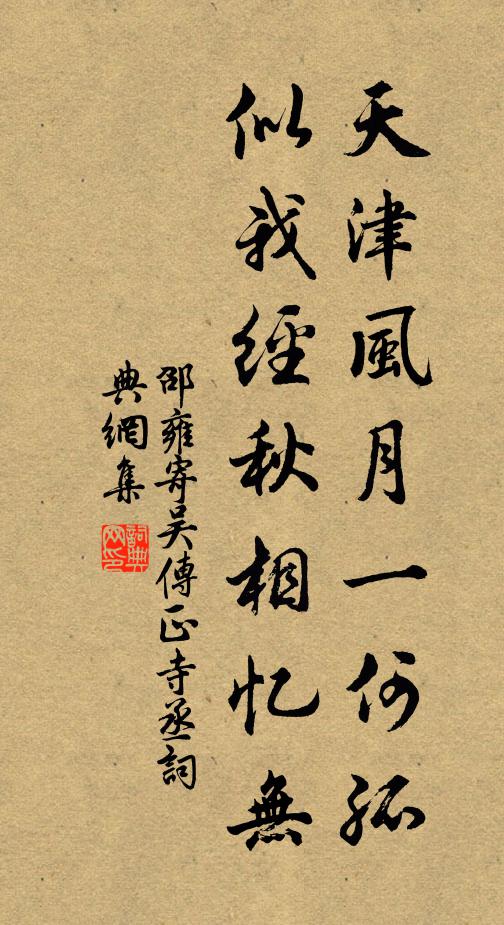 天津風月一何孤
似我經秋相忆無
邵雍寄吴傳正寺丞詞
典網集
詞典网印